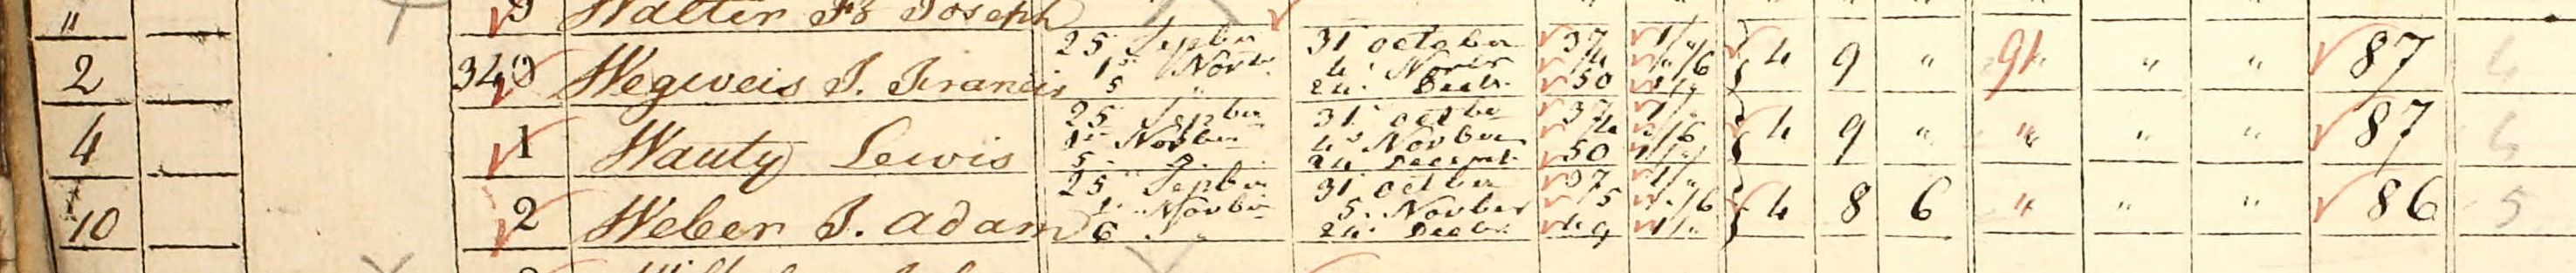 " 9 Walter Fz Joseph " " " " " "
25 Septbr 31 october 37 1/"
2 340 Wegweis J. Francis 1st Novbr 4 Novbr 4 "/6 4 9 " 91 " " 87 4
5 " 24 Decbr 50 1/"
25 Septbr 31 octbr 37 1/"
4 1 Wauty Lewis 1st Novber 4 Novber 4 "/6 4 9 " " " " 87 4
5 24 Decembr 50 1/"
25 Septbr 31 octber 37 1/"
10 2 Weber J. Adam 1 Novbr 5 Novber 5 "/6 4 8 6 " " " 86 5
6 " 24 Decbr 49 1/"